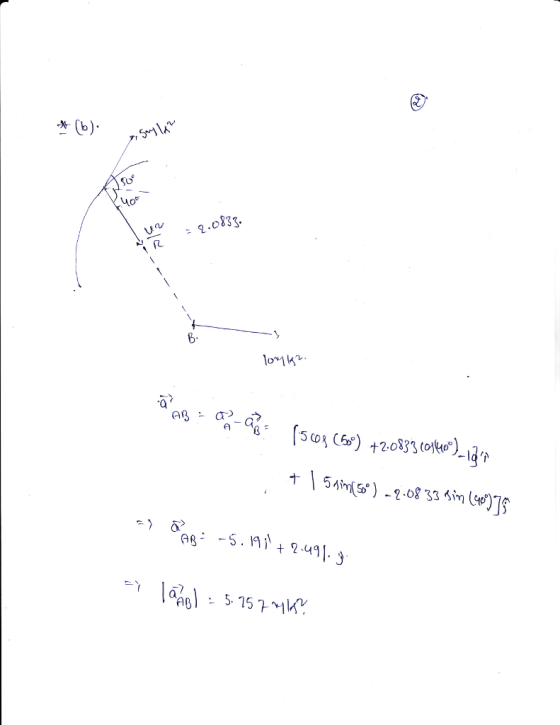 ②
* (b).
5m/s²
50°
40°
v²/R = 2.0833.
B.
10m/s².
a⃗_AB = a⃗_A - a⃗_B = [5cos(50°) + 2.0833cos(40°) - 10]î
+ [5sin(50°) - 2.0833sin(40°)]ĵ
=> a⃗_AB = -5.19î + 2.491.ĵ
=> |a⃗_AB| = 5.757 m/s².